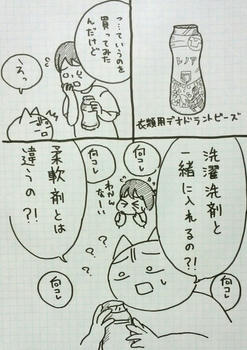 って
いうのを
買ってみた
んだけど
えっ
レノア
衣類用デオドラントビーズ
洗濯洗剤と
一緒に入れるの?!
何コレ
何コレ
わかん
なーい
柔軟剤とは
違うの?!
何コレ
何コレ